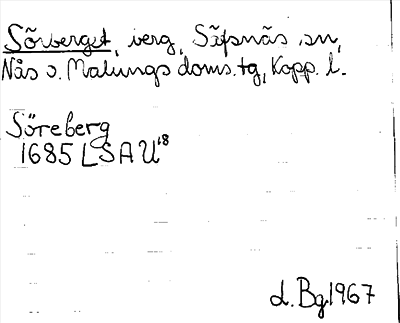 Sörberget, berg, Säfsnäs sn,
Nås o. Malungs doms.tg, Kopp. l.
Söreberg
1685 LSA U18
d. Bg 1967